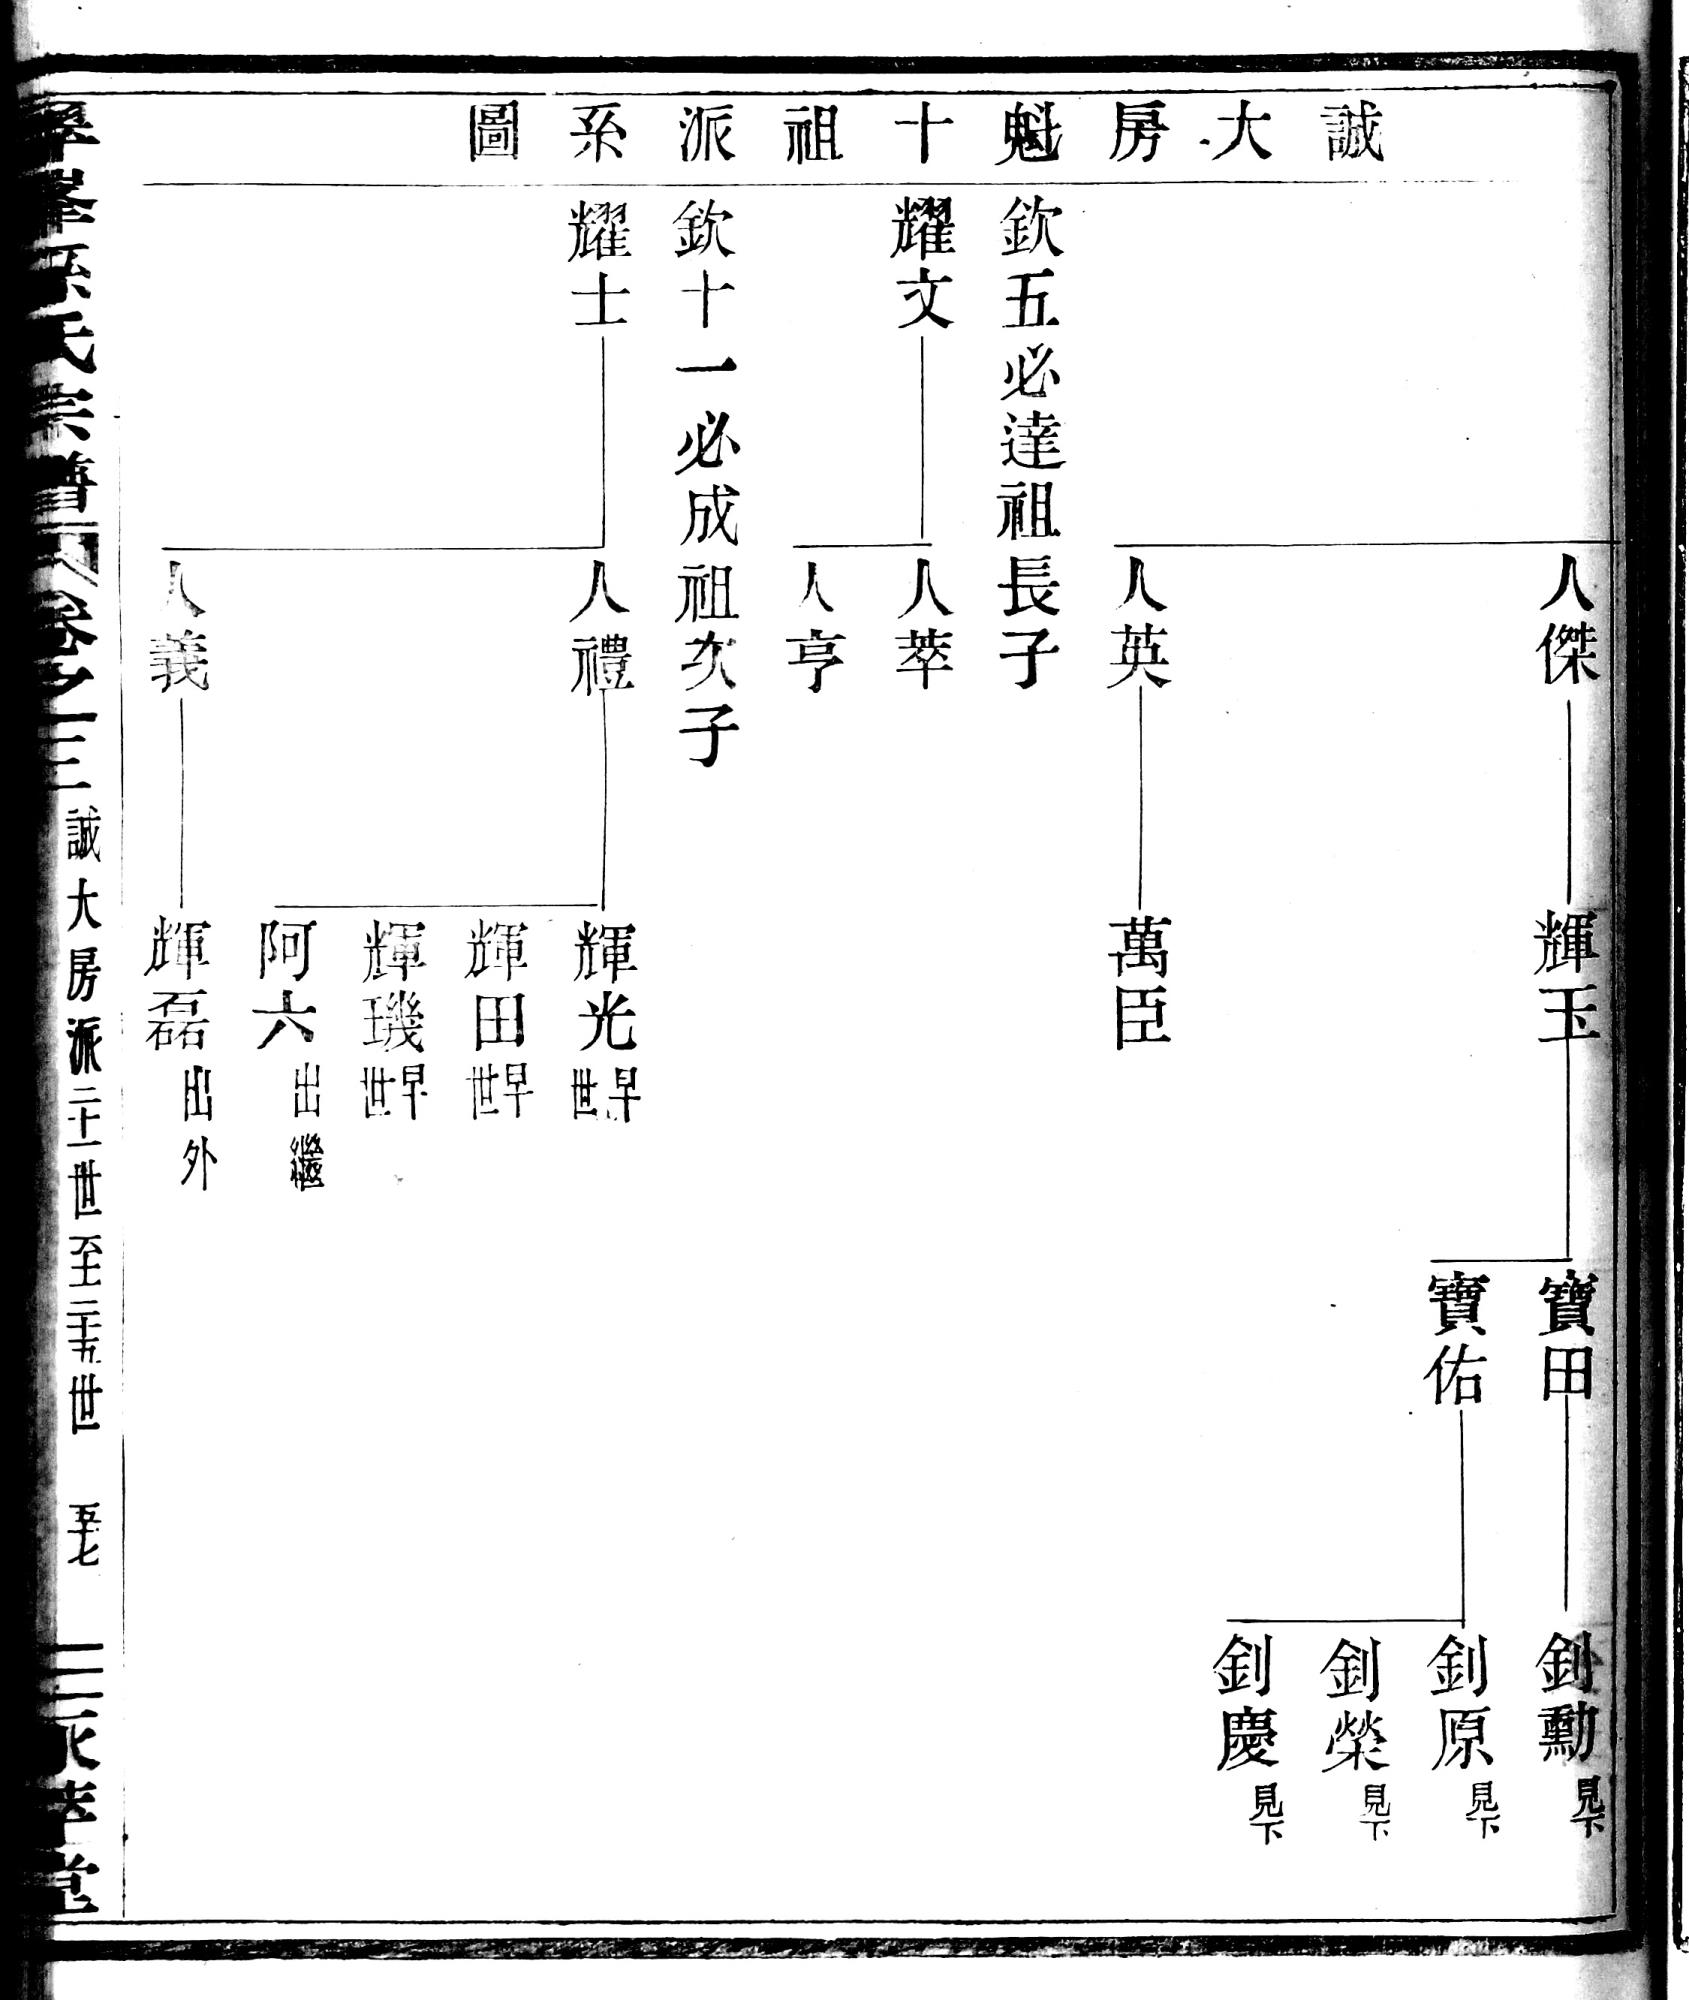 誠大房魁十祖派系圖
人傑
輝玉
寶田
釗勳 見下
寶佑
釗原 見下
釗榮 見下
釗慶 見下
人英
萬臣
欽五必達祖長子
耀文
人萃
人亨
欽十一必成祖次子
耀士
人禮
輝光 早世
輝田 早世
輝璣 早世
阿六 出繼
人義
輝磊 出外
孫氏宗譜 卷之十三 誠大房派二十一世至二十五世 五十七 映萃堂